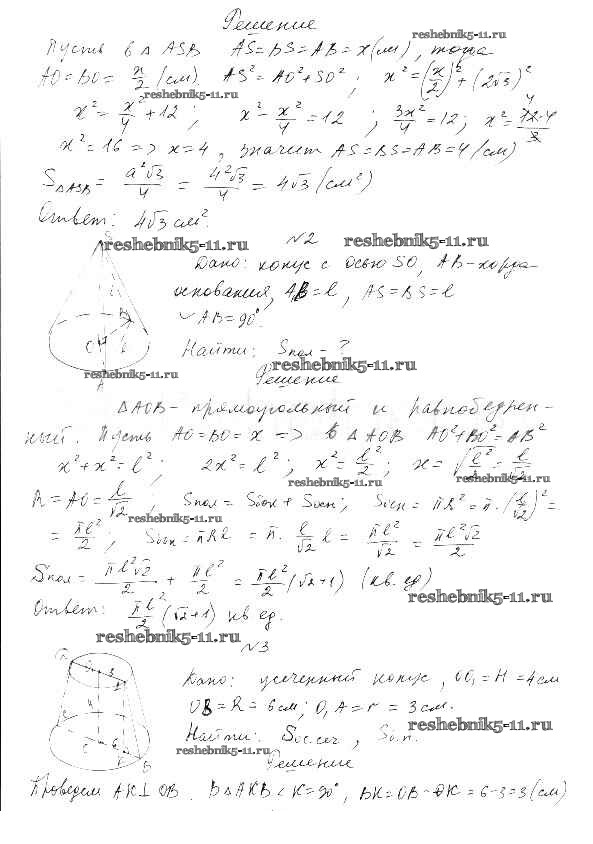 Решение
reshebnik5-11.ru
Пусть в △ ASB AS=BS=AB=x(см), тогда
AO=BO= x/2 (см). AS²=AO²+SO²; x²=(x/2)²+(2√3)²
reshebnik5-11.ru
x²= x²/4 +12; x²- x²/4 =12; 3x²/4 =12; x²= 12·4/3 4
x²=16 => x=4, значит AS=BS=AB=4(см)
S△ASB= a²√3/4 = 4²√3/4 = 4√3(см²)
Ответ: 4√3 см².
reshebnik5-11.ru №2 reshebnik5-11.ru
Дано: конус с осью SO, AB-хорда
основания, AB=l, AS=BS=l
◡AB=90°.
Найти: Sпол-?
reshebnik5-11.ru
reshebnik5-11.ru
Решение
△AOB-прямоугольный и равнобедрен-
ный. Пусть AO=BO=x => в △AOB AO²+BO²=AB²
x²+x²=l²; 2x²=l²; x²= l²/2; x= √l²/2 = l/√2
reshebnik5-11.ru
R=AO= l/√2; Sпол= Sбок+Sосн; Sосн=πR²=π·(l/√2)²=
reshebnik5-11.ru
= πl²/2; Sбок=πRl=π· l/√2 l = πl²/√2 = πl²√2/2
Sпол= πl²√2/2 + πl²/2 = πl²/2 (√2+1) (кв. ед)
reshebnik5-11.ru
Ответ: πl²/2 (√2+1) кв ед.
reshebnik5-11.ru
№3
Дано: усеченный конус, OO₁=H=4см
OB=R=6см; O₁A=r=3см.
reshebnik5-11.ru
Найти: Sос.сеч,
reshebnik5-11.ru
Решение
Проведем AK⊥OB. В△AKB ∠K=90°, BK=OB-OK=6-3=3(см)